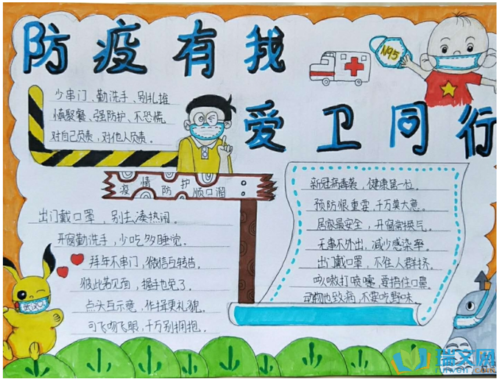 防疫有我
爱卫同行
N95
少串门、勤洗手、别扎堆
慎聚餐、强防护、不恐慌
对自己负责、对他人负责.
疫情防护顺口溜
出门戴口罩，别往凑热闹.
开窗勤洗手，少吃多睡觉.
拜年不串门，微信与转告.
彼此若见面，握手也免了.
点头互示意，作揖更礼貌.
可飞吻飞嘴，千万别拥抱.
新冠病毒袭，健康第一位.
预防很重要，千万莫大意.
居家最安全，开窗常换气.
无事不外出，减少感染率.
出门戴口罩，不往人群挤.
咳嗽打喷嚏，要捂住口鼻.
动物也致病，不要吃野味.